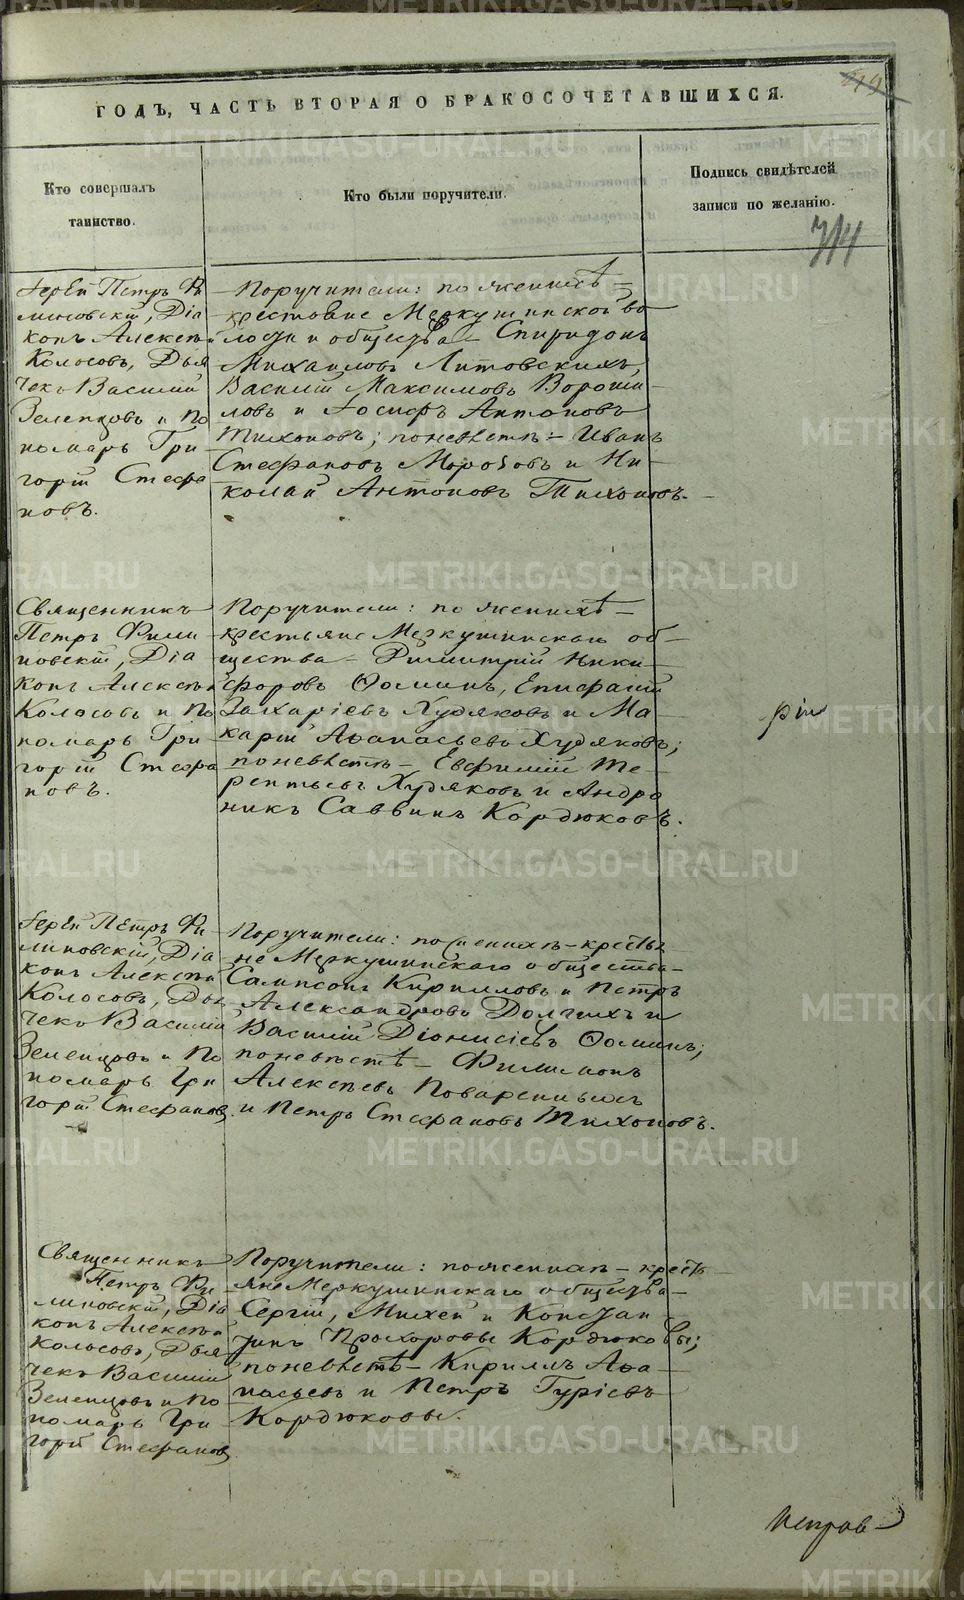 49
ГОДЪ, ЧАСТЬ ВТОРАЯ О БРАКОСОЧЕТАВШИХСЯ.
Кто совершалъ
таинство.
Кто были поручители.
Подпись свидѣтелей
записи по желанію.
714
Іерей Петръ Фи
липовскій, Діа
конъ Алексѣй
Колосовъ, Дья
чекъ Василій
Зеленцовъ и По
номарь Гри-
горій Стефа
новъ.
Поручители: по женихѣ —
крестьяне Меркушинской во
лости и общества — Спиридонъ
Михаиловъ Литовскихъ,
Василій Максимовъ Вороши-
ловъ и Іосифъ Антоновъ
Тихоновъ; по невѣстѣ — Иванъ
Стефановъ Морозовъ и Ни-
колай Антоновъ Тихоновъ. —
Священникъ
Петръ Фили
повскій, Діа
конъ Алексѣй
Колосовъ и По
номарь Гри-
горій Стефа
новъ.
Поручители: по женихѣ —
крестьяне Меркушинскаго об-
щества — Димитрій Ники-
форовъ Ѳоминъ, Епифаній
Захаріевъ Худяковъ и Ма-
карій Аѳанасьевъ Худяковъ;
по невѣстѣ — Евфимій Те-
рентьевъ Худяковъ и Андро
никъ Саввинъ Кордюковъ.
Іерей Петръ Фи-
липовскій, Діа
конъ Алексѣй
Колосовъ, Дья
чекъ Василій
Зеленцовъ и По
номарь Гри
горій Стефановъ.
Поручители: по женихѣ — крестья
не Меркушинскаго общества —
Сампсонъ Кирилловъ и Петръ
Александровъ Долгихъ и
Василій Діонисіевъ Ѳоминъ;
по невѣстѣ — Филимонъ
Алексѣевъ Поваренныхъ
и Петръ Стефановъ Тихоновъ.
Священникъ
Петръ Фи-
липовскій, Діа
конъ Алексѣй
Колосовъ, Дья
чекъ Василій
Зеленцовъ и По
номарь Гри
горій Стефановъ
Поручители: по женихѣ — кресть-
яне Меркушинскаго общества —
Сергій, Михей и Констан
тинъ Прохоровы Кордюковы;
по невѣстѣ — Кириллъ Аѳа-
насьевъ и Петръ Гуріевъ
Кордюковы.
METRIKI.GASO-URAL.RU